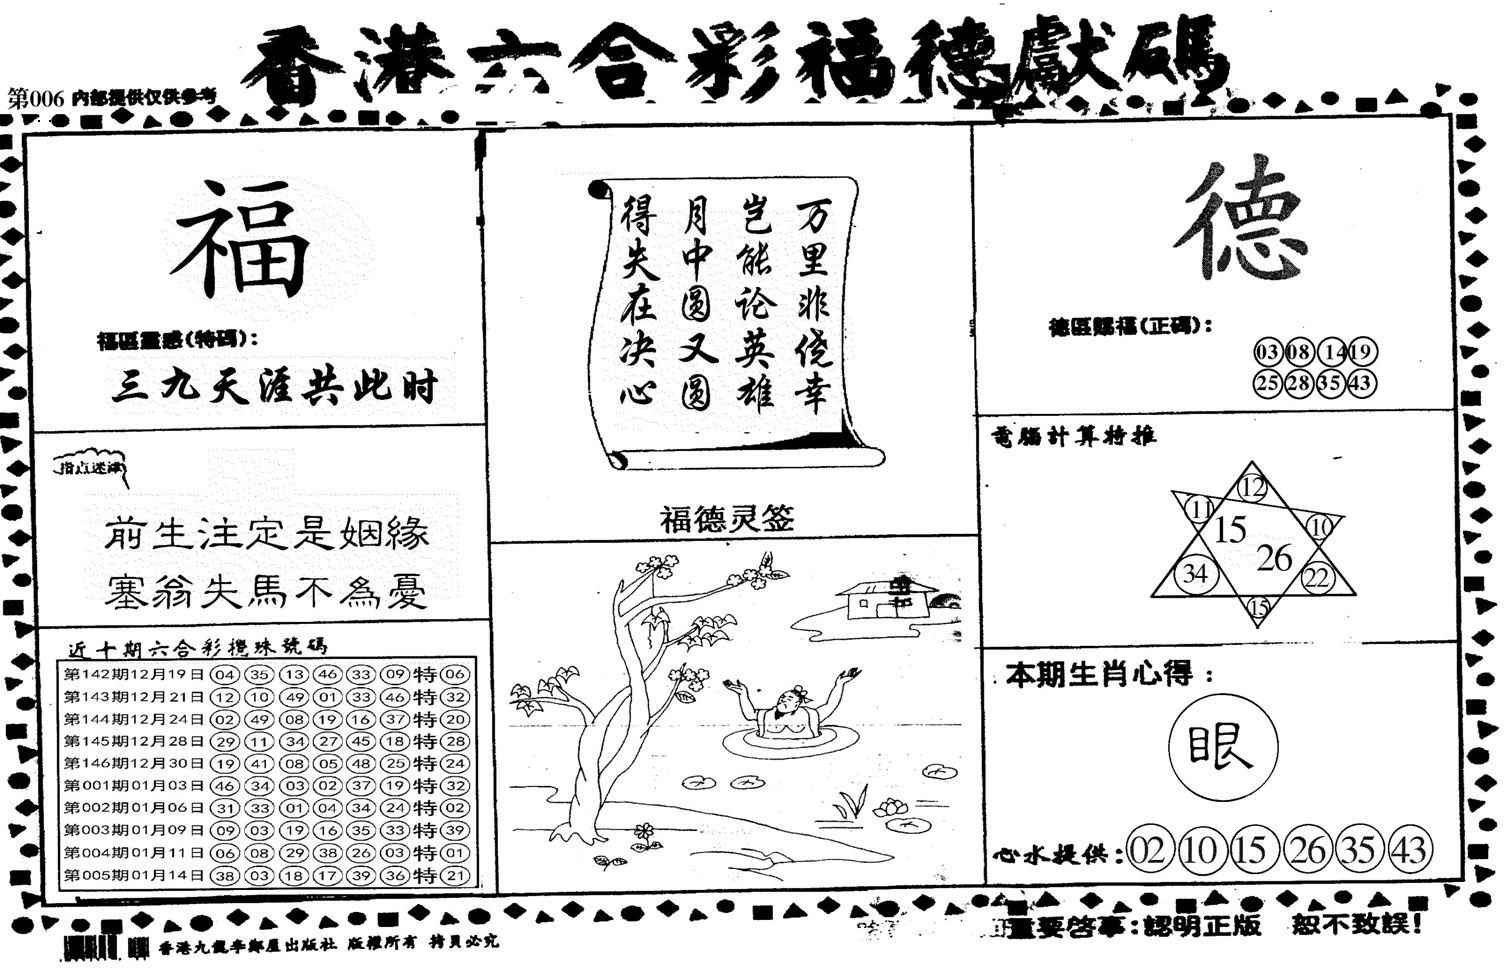 香港六合彩福德獻碼
第006 内部提供仅供参考
福
福區靈感(特碼):
三九天涯共此时
指点迷津
前生注定是姻緣
塞翁失馬不為憂
近十期六合彩攪珠號碼
第142期12月19日 04 35 13 46 33 09 特 06
第143期12月21日 12 10 49 01 33 46 特 32
第144期12月24日 02 49 08 19 16 37 特 20
第145期12月28日 29 11 34 27 45 18 特 28
第146期12月30日 19 41 08 05 48 25 特 24
第001期01月03日 46 34 03 02 37 19 特 32
第002期01月06日 31 33 01 04 34 24 特 02
第003期01月09日 09 03 19 16 35 33 特 39
第004期01月11日 06 08 29 38 26 03 特 01
第005期01月14日 38 03 18 17 39 36 特 21
万里非侥幸
岂能论英雄
月中圆又圆
得失在决心
福德灵签
德
德區賜福(正碼):
03 08 14 19
25 28 35 43
電腦計算特推
12
11
15
10
26
34
22
15
本期生肖心得:
眼
心水提供: 02 10 15 26 35 43
香港九龍李鄭屋出版社 版權所有 拷貝必究
重要啓事:認明正版 恕不致誤!